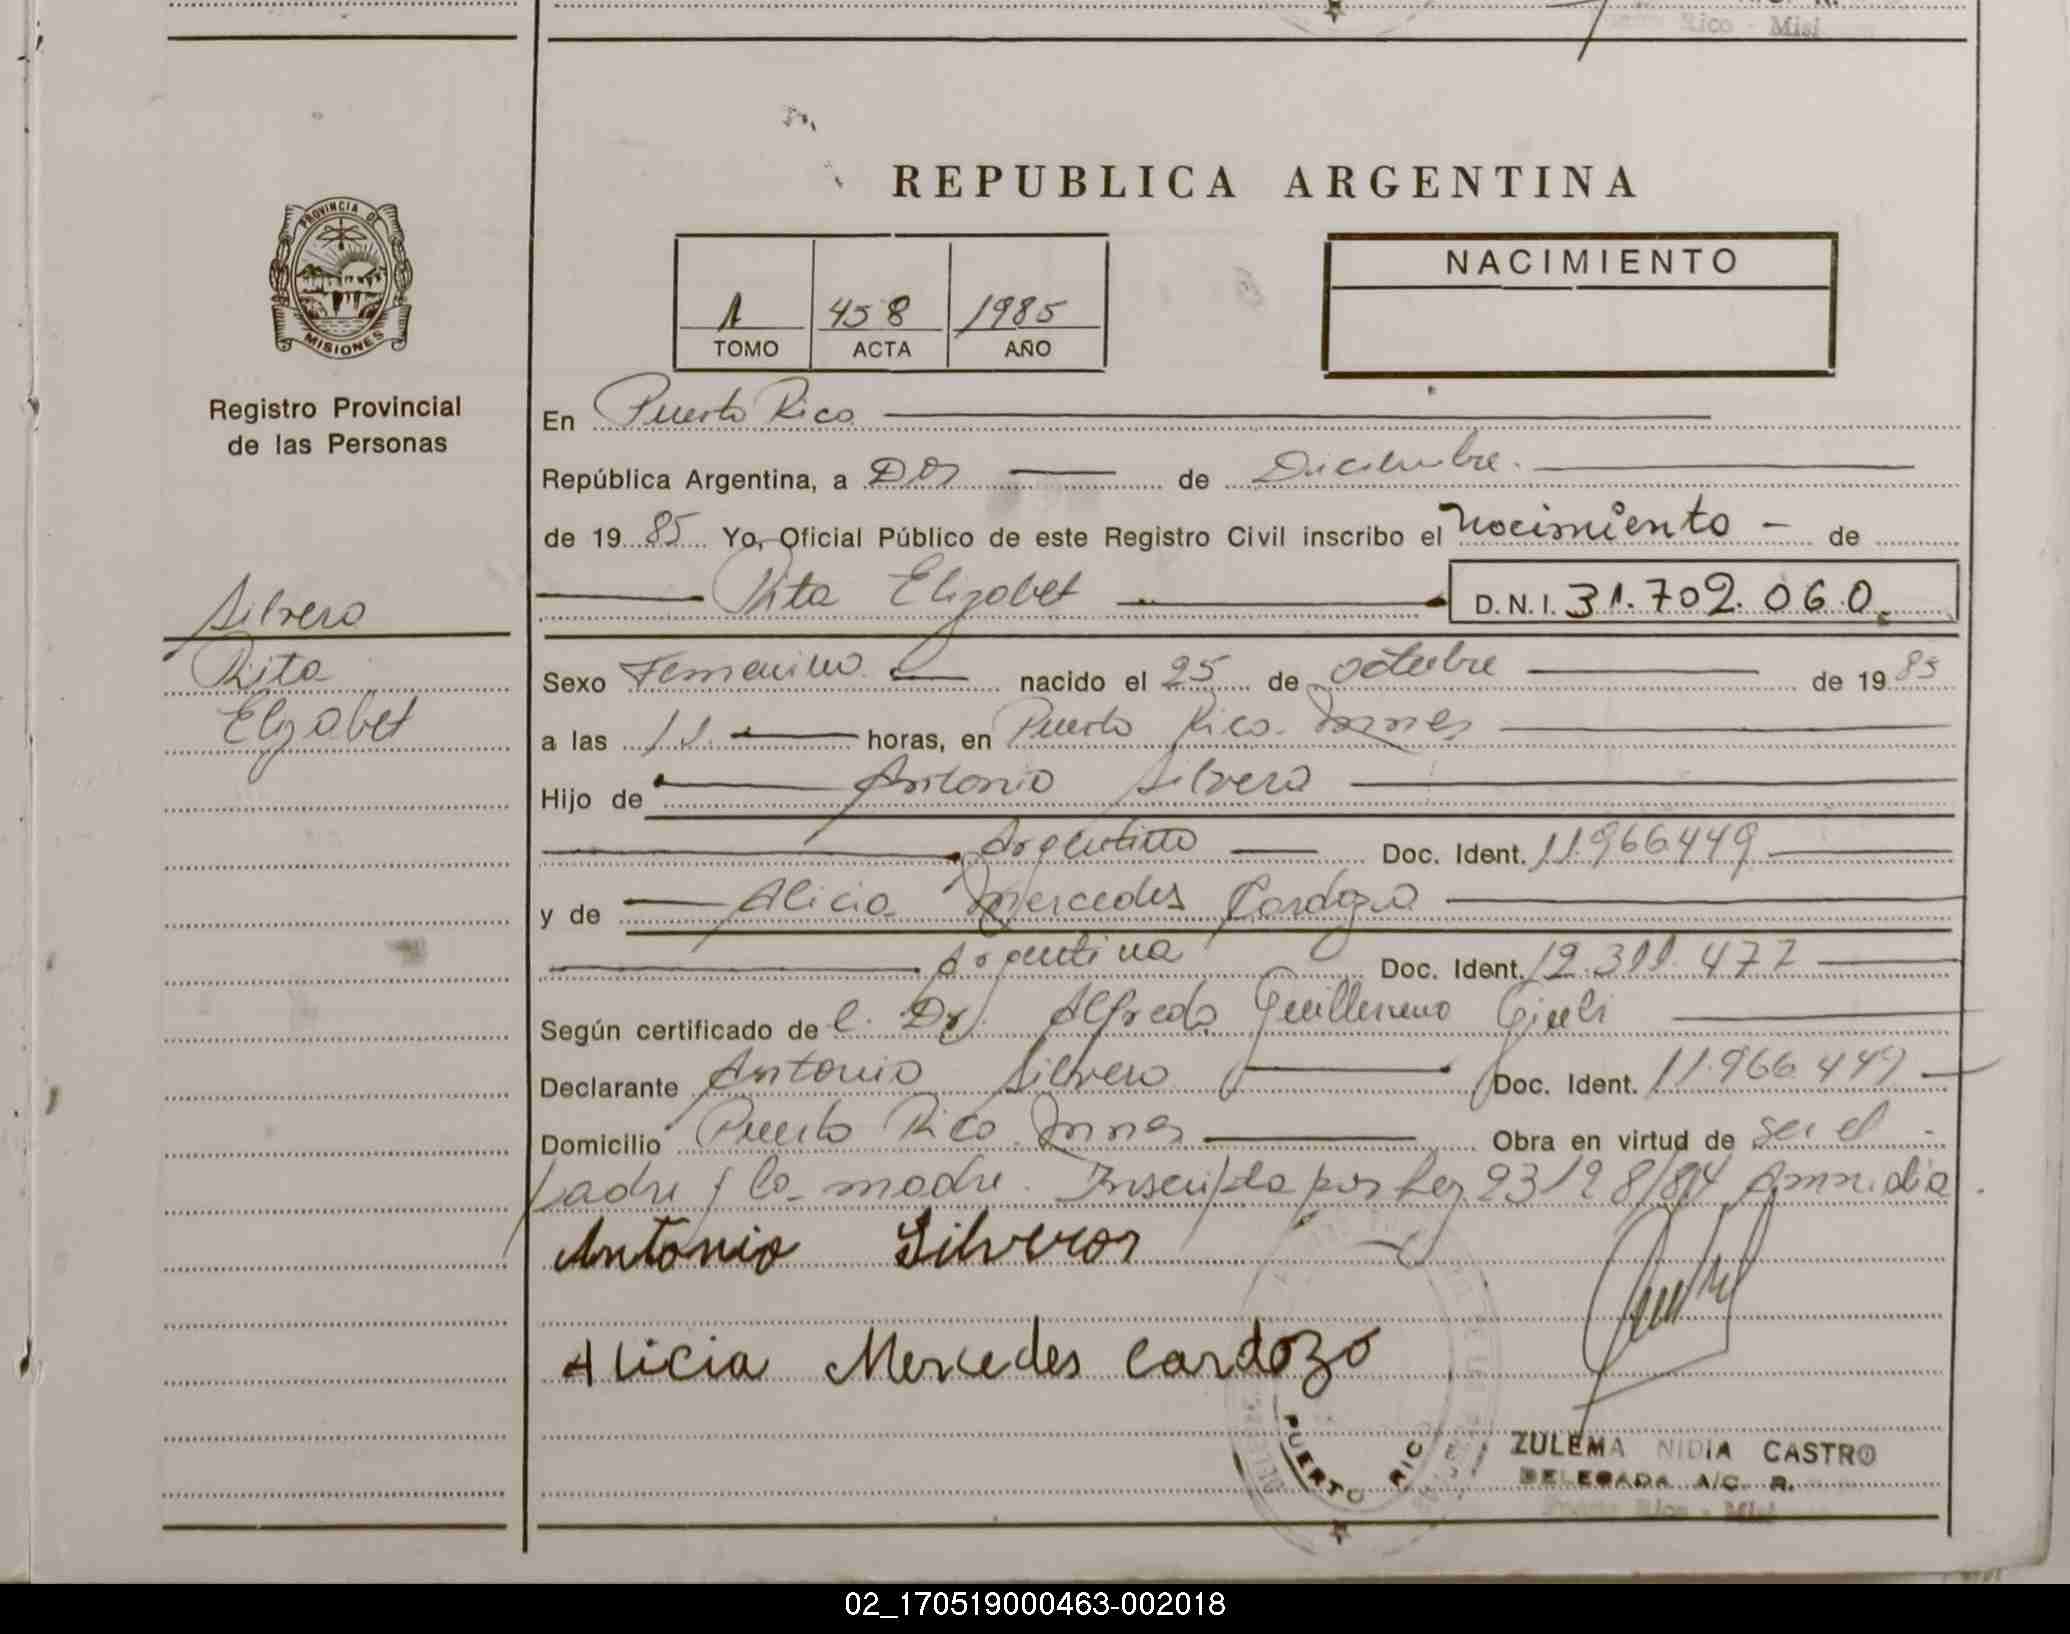 Rico - Misi
REPUBLICA ARGENTINA
PROVINCIA DE
MISIONES
NACIMIENTO
1 458 1985
TOMO ACTA AÑO
Registro Provincial
de las Personas
En Puerto Rico
República Argentina, a Dos de Diciembre.
de 19 85 Yo, Oficial Público de este Registro Civil inscribo el Nacimiento - de
Rita Elizabet D.N.I. 31.702.060.
Silvero
Rita
Elizabet
Sexo Femenino nacido el 25 de octubre de 19 85
a las 11. horas, en Puerto Rico. Mnes
Hijo de Antonio Silvero
Argentino Doc. Ident. 11.966.449
y de Alicia Mercedes Cardozo
Argentina Doc. Ident. 12.311.477
Según certificado de l. Dr. Alfredo Guillermo
Declarante Antonio Silvero Doc. Ident. 11.966.449
Domicilio Puerto Rico Mnes Obra en virtud de ser el -
padre y la madre. Inscripta por Ley 23128/84 Amnistía.
Antonio Silveros
Alicia Mercedes Cardozo
PUERTO RICO
ZULEMA NIDIA CASTRO
DELEGADA A/C. R.
Puerto Rico - Misi
02_170519000463-002018